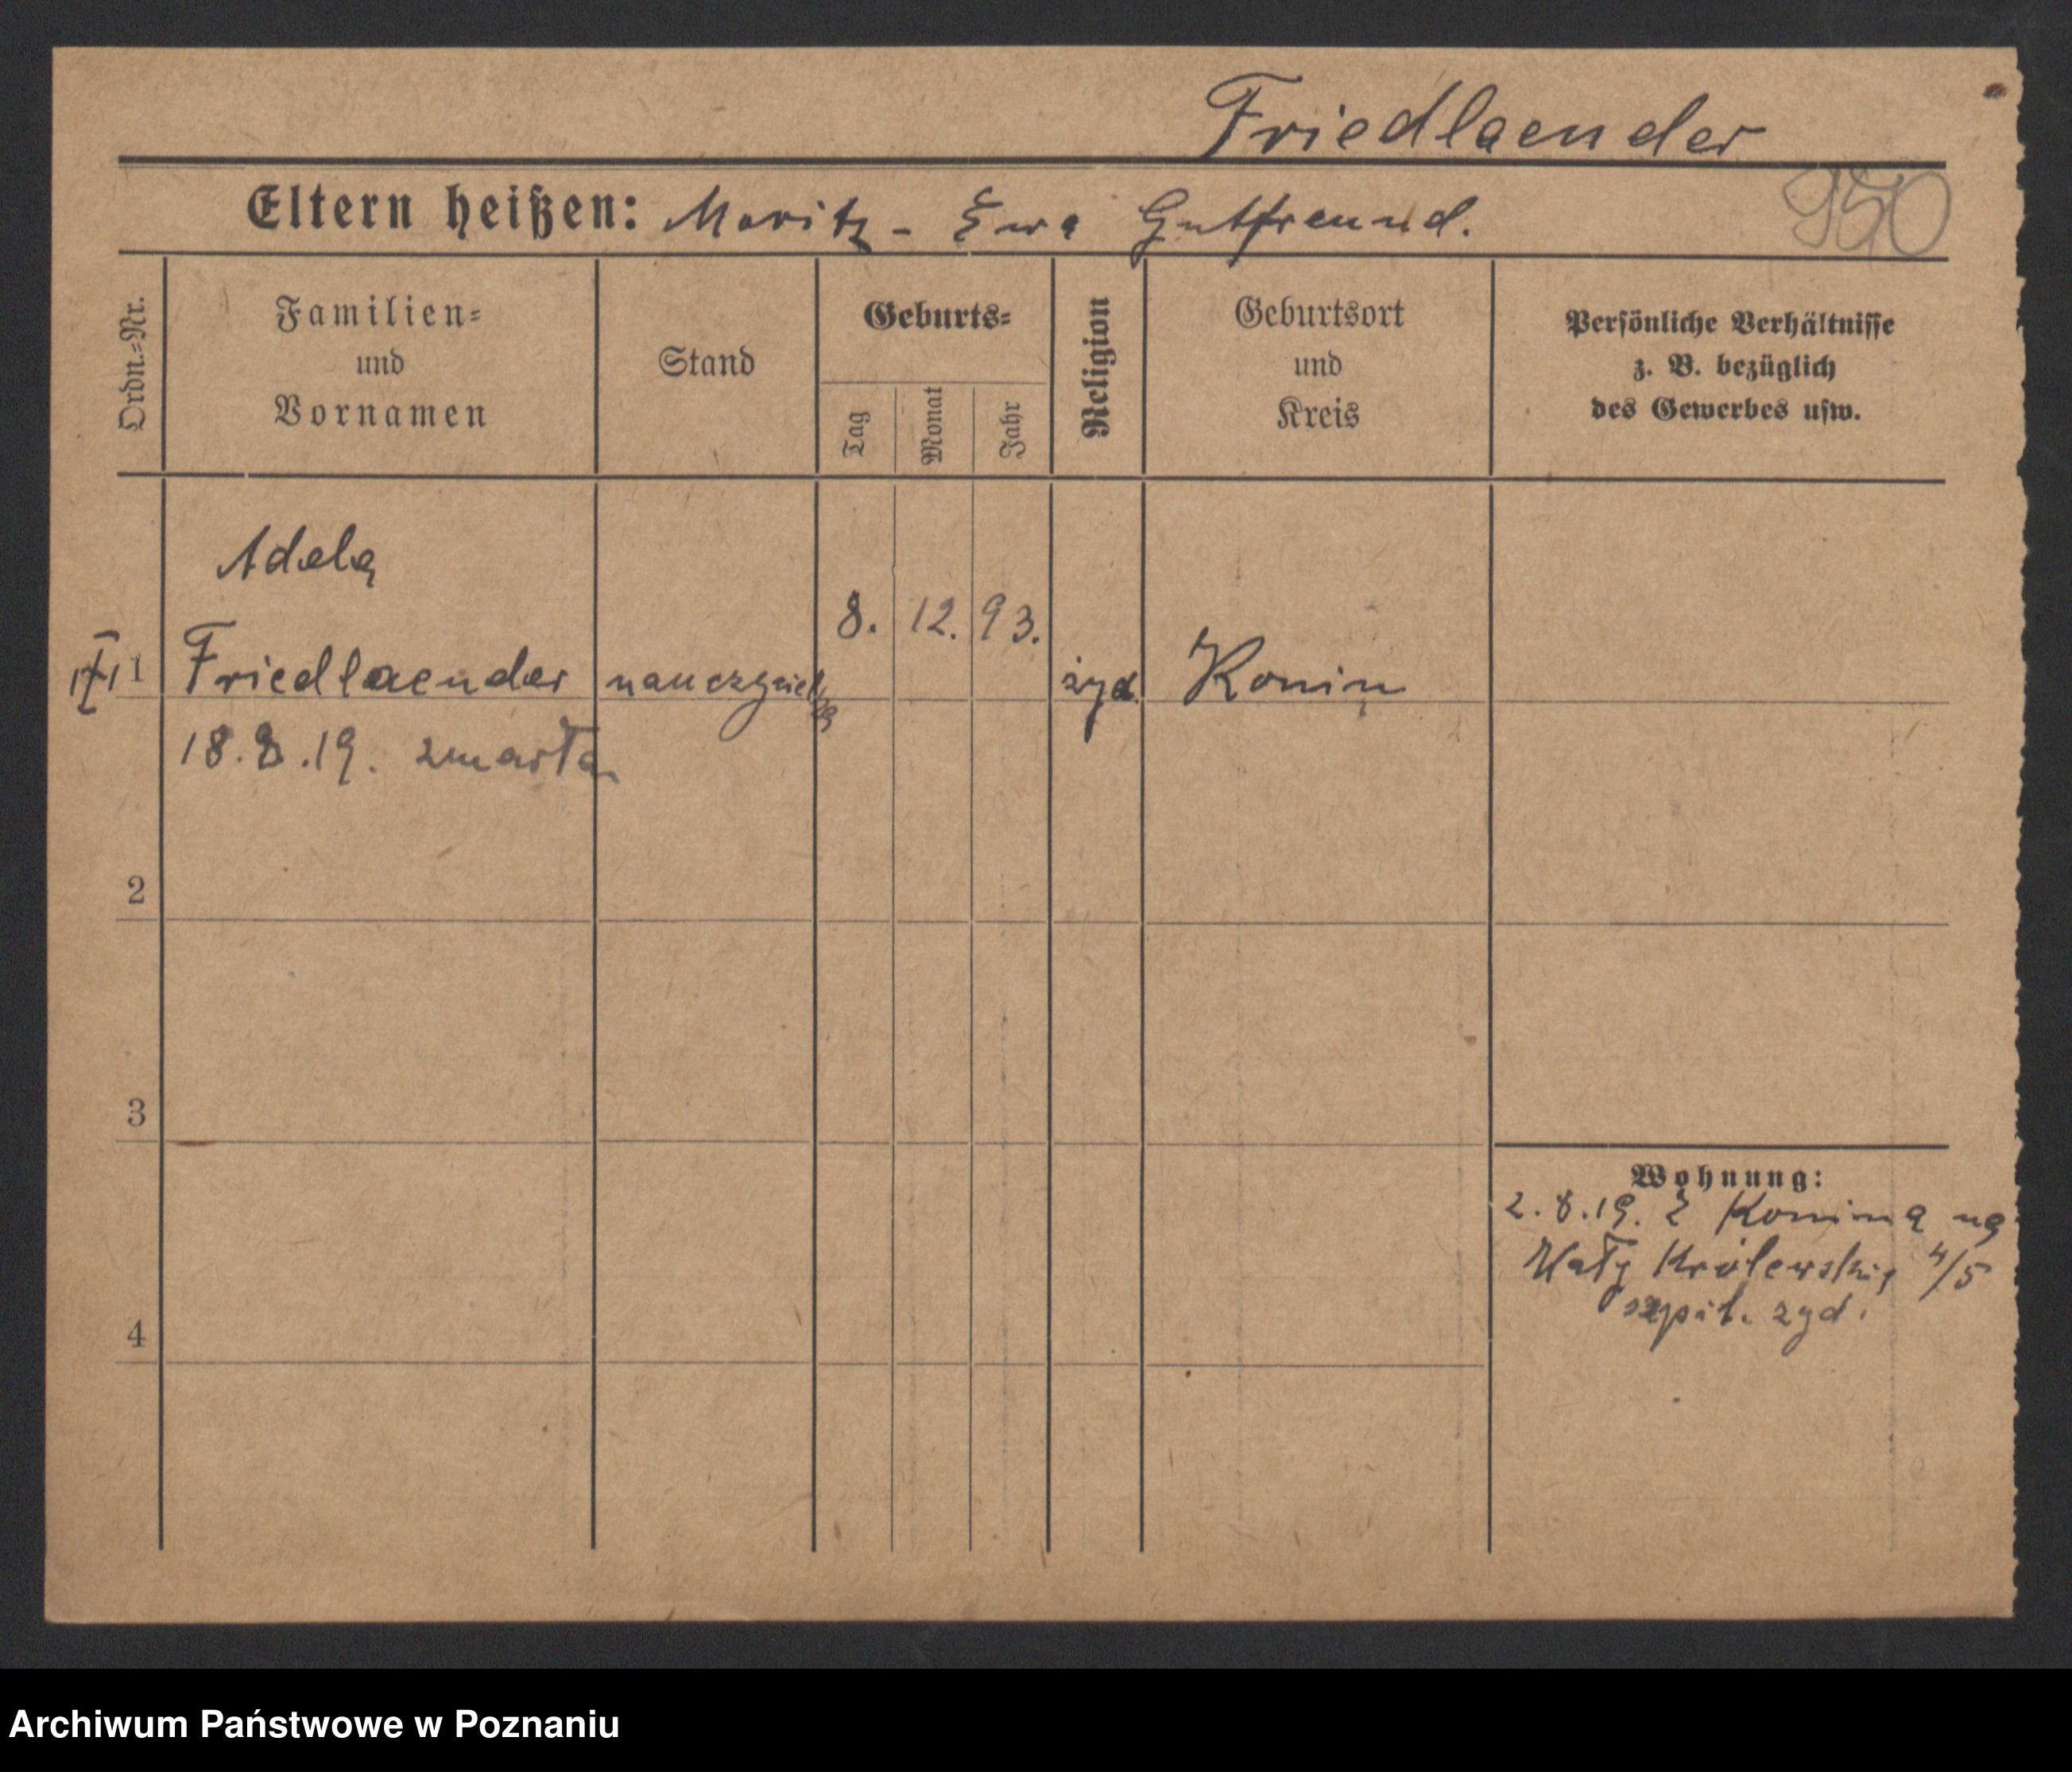 Friedlaender
Eltern heißen: Moritz - Ewa Gutfreund.
950
Ordn.-Nr.
Familien-
und
Vornamen
Stand
Geburts-
Tag
Monat
Jahr
Religion
Geburtsort
und
Kreis
Persönliche Verhältnisse
z. B. bezüglich
des Gewerbes usw.
Adela
1 Friedlaender nauczycielka 8. 12. 93. żyd. Konin
18.8.19. zmarła
2
3
4
Wohnung:
2.8.19. z Konina na
Wały Królewskie 4/5
szpit. zyd.
Archiwum Państwowe w Poznaniu